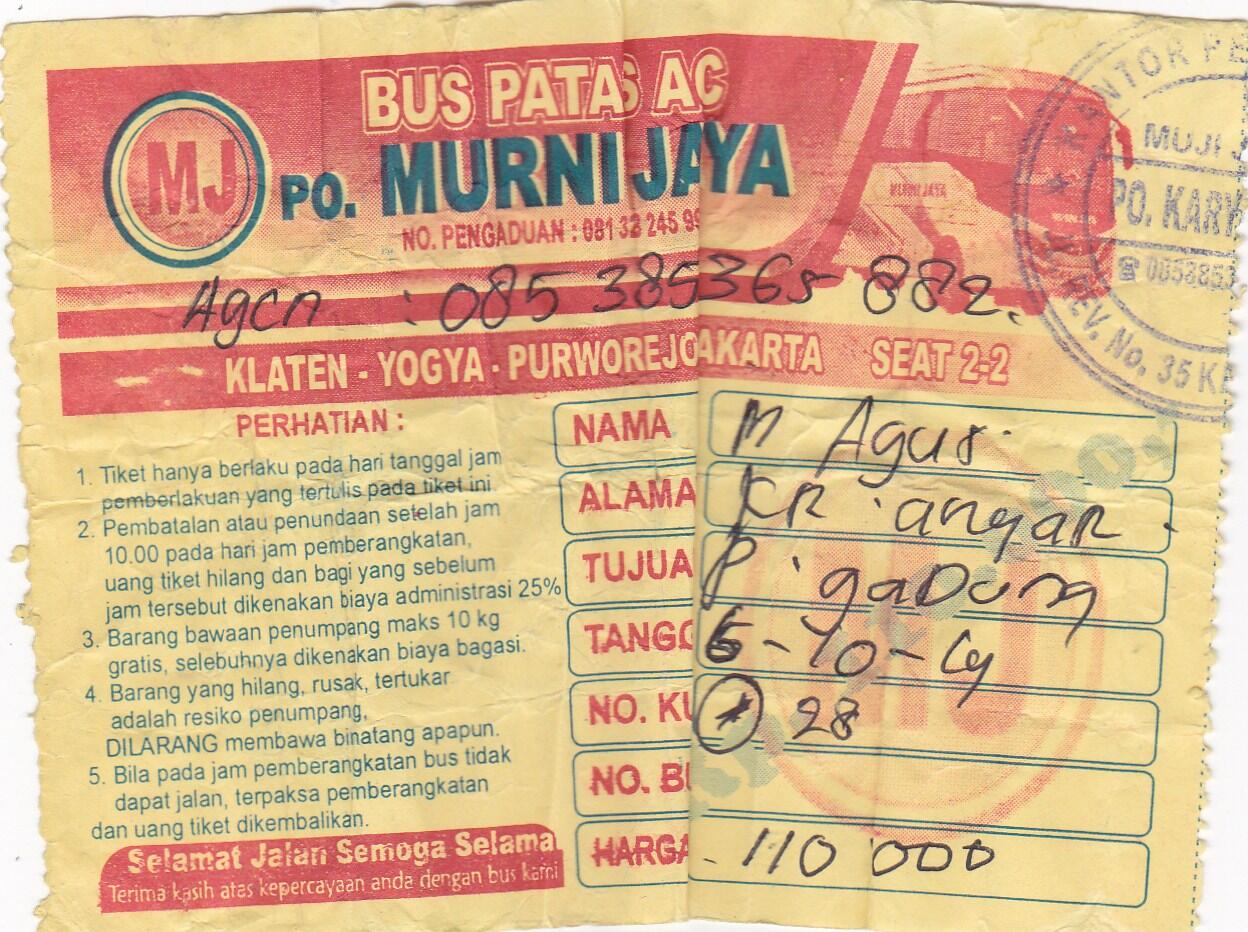 BUS PATAS AC
MJ
PO. MURNI JAYA
NO. PENGADUAN : 081 32 245 99
MURNI JAYA
KANTOR PE
MUJI J
PO. KARY
☎ 0853853
REV. No. 35 K
Agen : 085 385 365 882.
KLATEN - YOGYA - PURWOREJO AKARTA SEAT 2-2
PERHATIAN :
1. Tiket hanya berlaku pada hari tanggal jam
pemberlakuan yang tertulis pada tiket ini
2. Pembatalan atau penundaan setelah jam
10.00 pada hari jam pemberangkatan,
uang tiket hilang dan bagi yang sebelum
jam tersebut dikenakan biaya administrasi 25%
3. Barang bawaan penumpang maks 10 kg
gratis, selebuhnya dikenakan biaya bagasi.
4. Barang yang hilang, rusak, tertukar
adalah resiko penumpang,
DILARANG membawa binatang apapun.
5. Bila pada jam pemberangkatan bus tidak
dapat jalan, terpaksa pemberangkatan
dan uang tiket dikembalikan.
Selamat Jalan Semoga Selama
Terima kasih atas kepercayaan anda dengan bus kami
NAMA M Agus
ALAMA KR . anyar .
TUJUA P . gadung
TANGG 6-10-14
NO. KU 28
NO. BU
HARGA 110 000